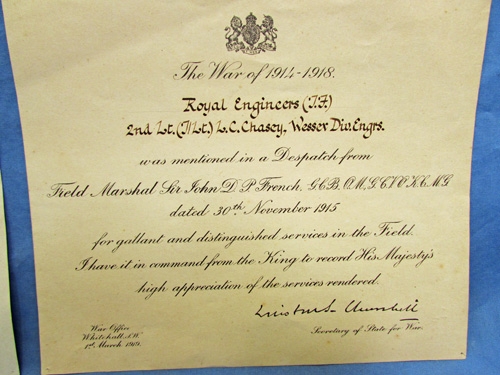 The War of 1914-1918.
Royal Engineers (T.F.)
2nd Lt. (T/Lt.) L.C. Chasey, Wessex Div. Engrs.
was mentioned in a Despatch from
Field Marshal Sir John D. P. French, G.C.B., O.M., G.C.V.O., K.C.M.G.
dated 30th November 1915
for gallant and distinguished services in the Field.
I have it in command from the King to record His Majesty's
high appreciation of the services rendered.
Winston S. Churchill
War Office
Whitehall, S.W.
1st March 1919.
Secretary of State for War.